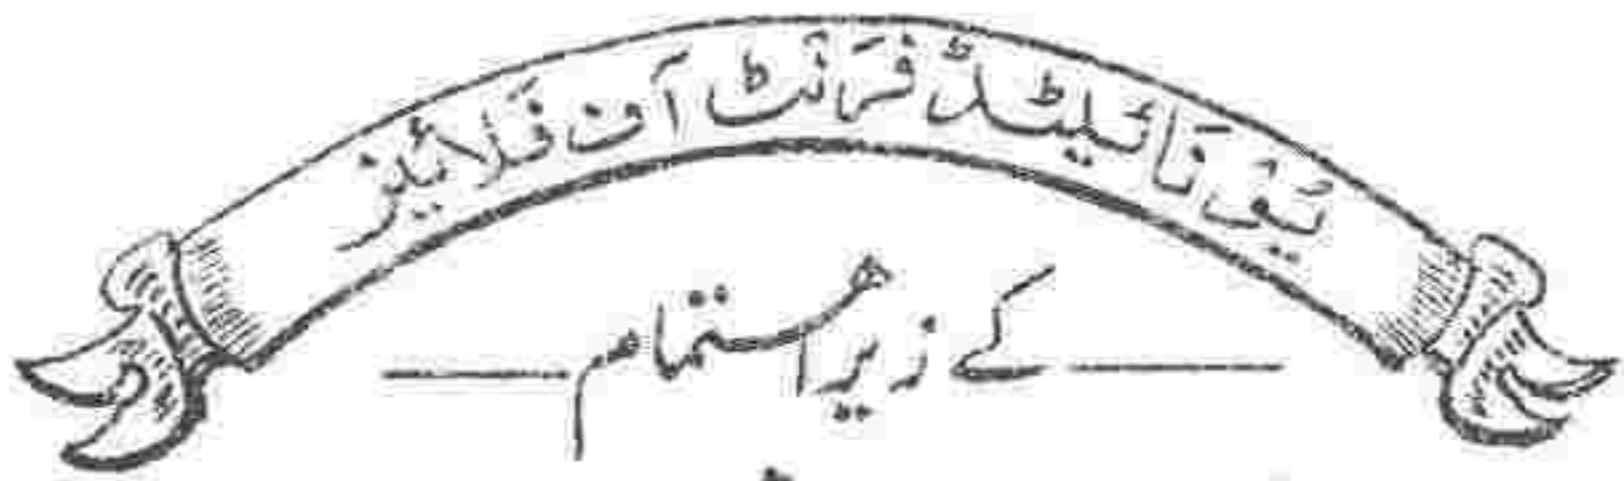 یُونَائیٹڈ فرَنٹ آف فلائیز
کے زیرِ اہتمام